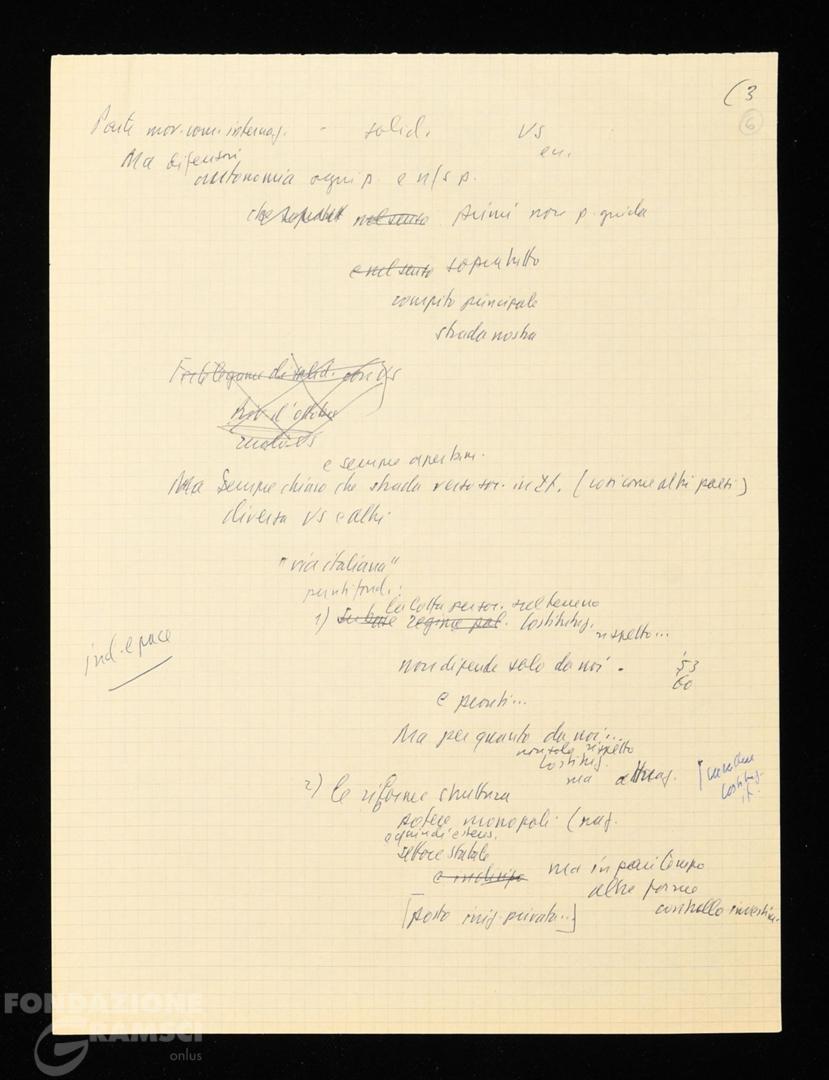 (3
6
Parte mov. com. internaz. - solid. VS
en.
Ma difensori
autonomia ogni p. e n/s p.
nel senso primi non p. guida
e nel senso soprattutto
compito principale
strada nostra
legame di solid. VS
Riv. d'ottobre
e sempre apertam.
Ma Sempre chiaro che strada verso soc. in It. (così come altri paesi)
diversa VS e altri
"via italiana"
punti fond.:
la lotta per soc. sul terreno
1) Su base regime pal. Costituz. rispetto...
ind. e pace
non dipende solo da noi - '53
60
e pronti...
Ma per quanto da noi...
non solo rispetto
Costituz.
ma attuaz.
Costituz.
it.
2) le riforme struttura
potere monopoli (naz.
e quindi estens.
settore statale
ma in pari tempo
altre forme
controllo investim.
[posto iniz. privata...]
FONDAZIONE
GRAMSCI
onlus